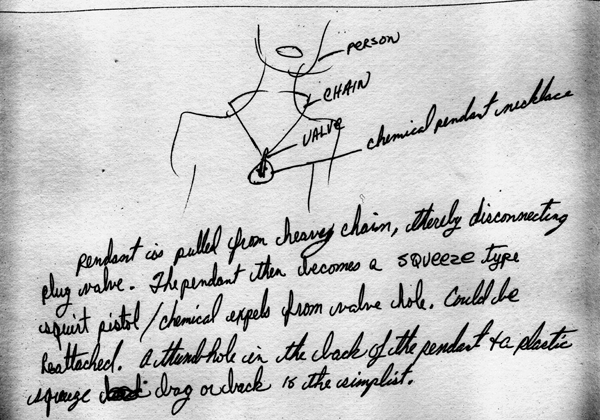 PERSON
CHAIN
VALVE
chemical pendant necklace
Pendant is pulled from heavy chain, thereby disconnecting
plug valve. The pendant then becomes a SQUEEZE type
squirt pistol / chemical expels from valve hole. Could be
Reattached. A thumbhole in the back of the pendant & a plastic
squeeze bag or back is the simplist.